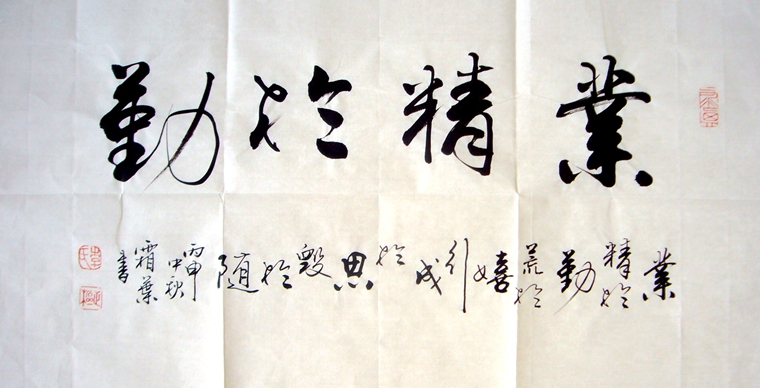 業精於勤
業精於勤荒於嬉行成於思毀於隨
丙申中秋
霜葉書